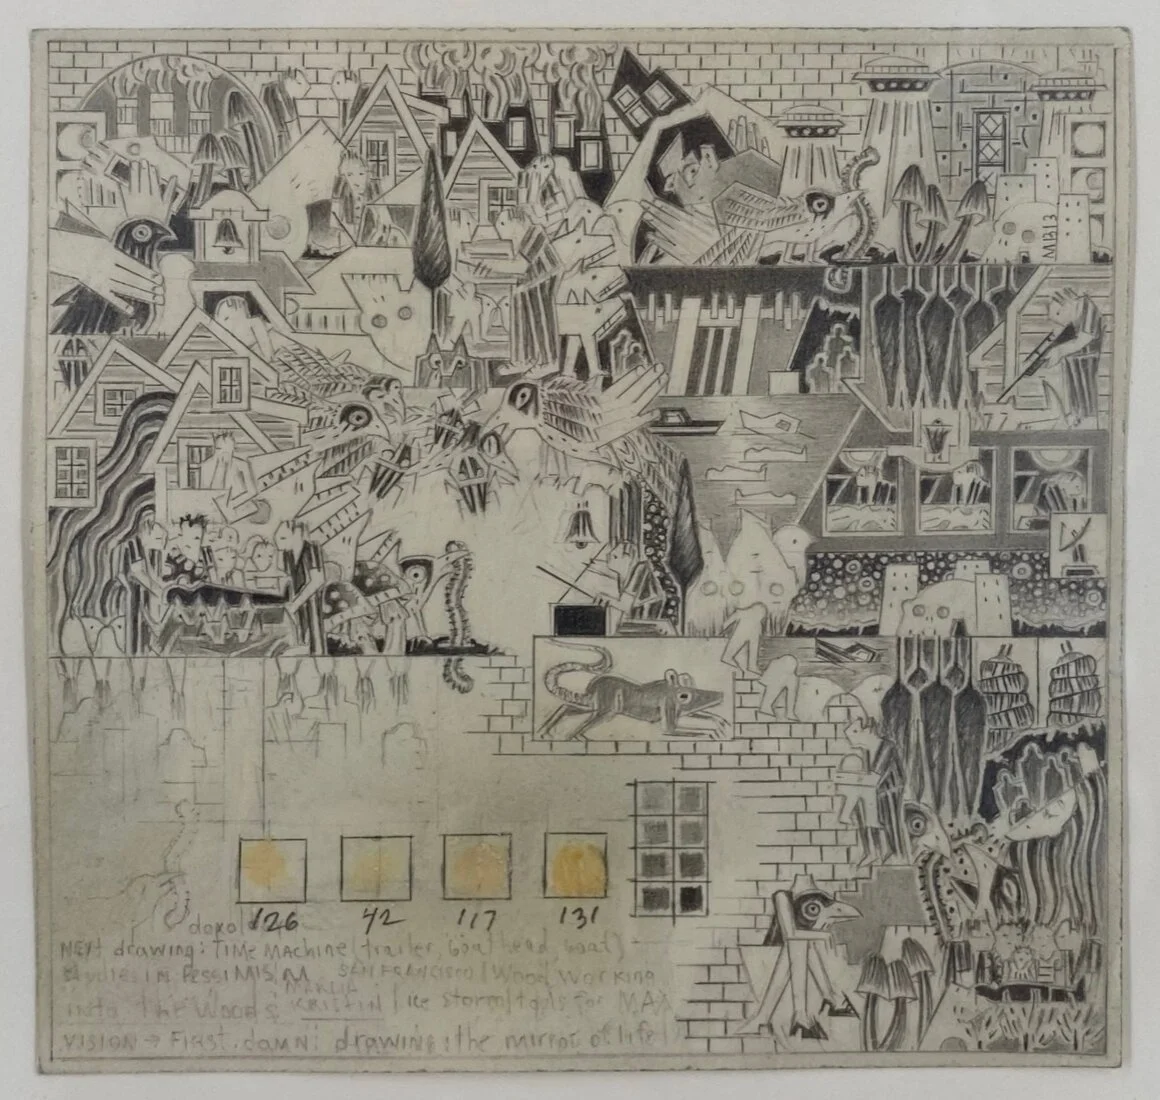 MB13
126 42 117 131
NEXT drawing: TIME MACHINE (trailer, goat head, boat) →
studies in PessiMISM SAN FRANCISCO / Wood Working
MARLIA
into the WOODS KRISTIN / Ice storm / tools for MAA
VISION → FIRST. damn: drawing: the mirror of life!